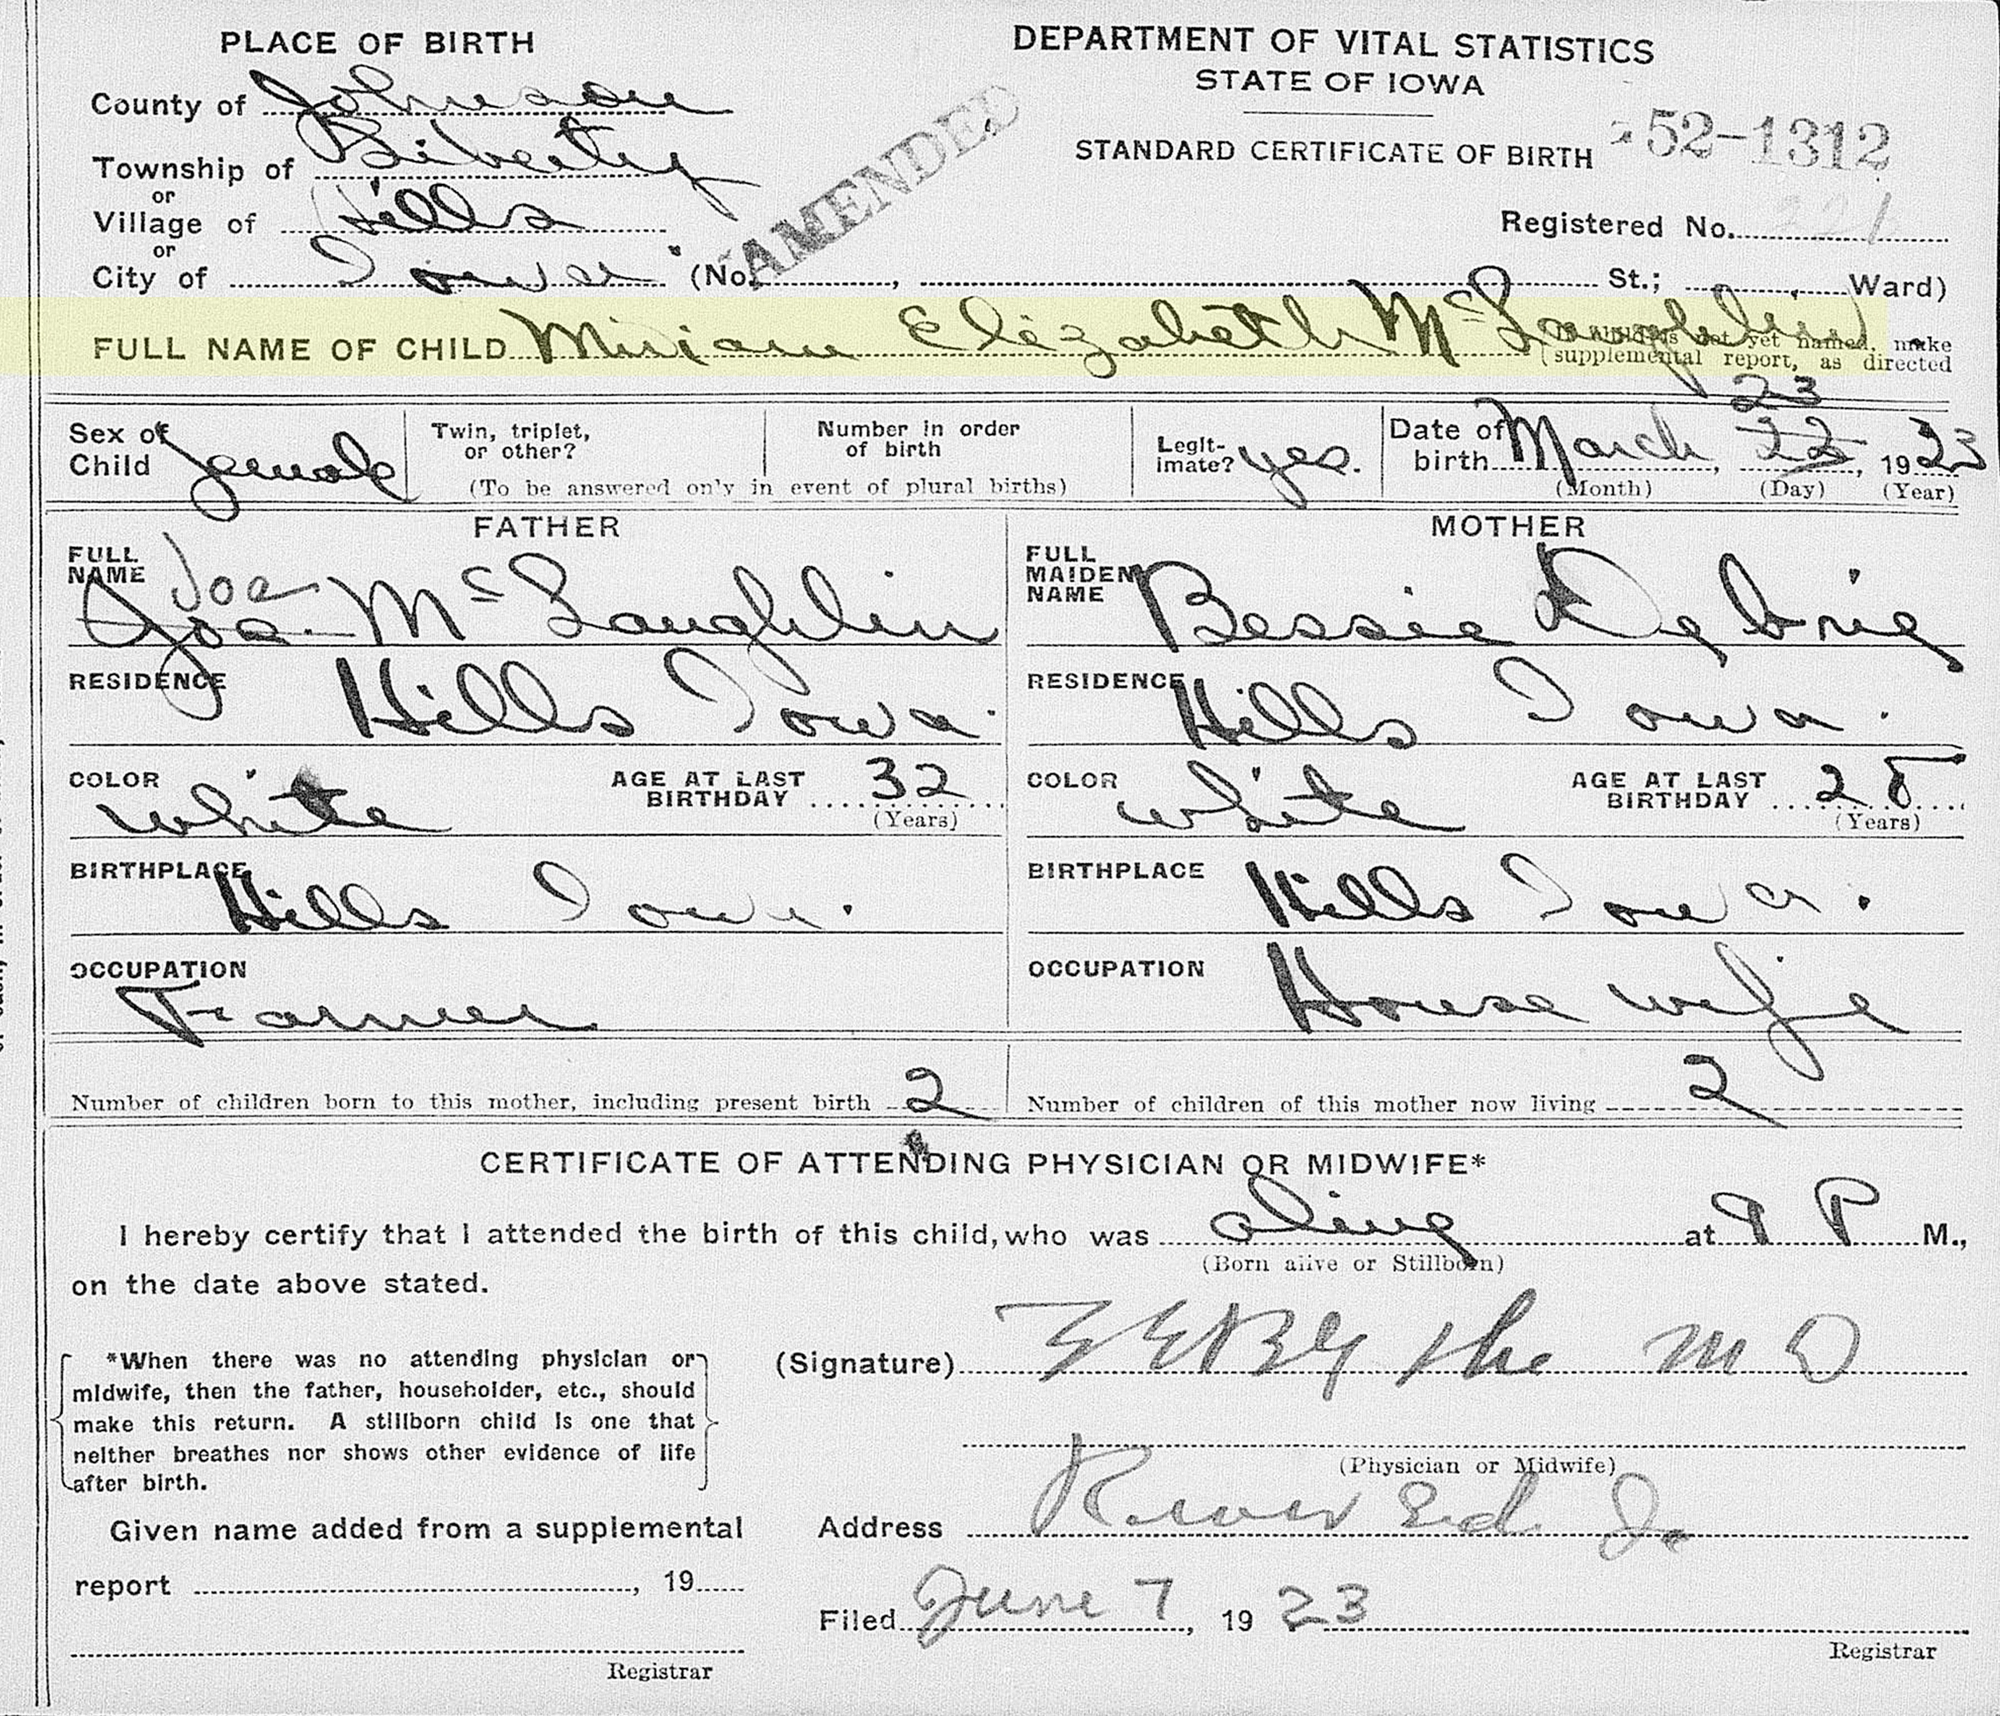 PLACE OF BIRTH
DEPARTMENT OF VITAL STATISTICS
STATE OF IOWA
County of Johnson
Township of Liberty
or
Village of Hills
or
City of Iowa (No. , St.; Ward)
AMENDED
STANDARD CERTIFICATE OF BIRTH
52-1312
Registered No. 221
FULL NAME OF CHILD Miriam Elizabeth McLaughlin
yet named, make
supplemental report, as directed
Sex of Child female
Twin, triplet, or other?
Number in order of birth
(To be answered only in event of plural births)
Legit-imate? yes.
Date of birth March 22 23, 1923
(Month) (Day) (Year)
FATHER
FULL NAME Joe Joe. McLaughlin
RESIDENCE Hills Iowa.
COLOR white
AGE AT LAST BIRTHDAY 32
(Years)
BIRTHPLACE Hills Iowa.
OCCUPATION
Farmer
MOTHER
FULL MAIDEN NAME Bessie
RESIDENCE Hills Iowa.
COLOR white
AGE AT LAST BIRTHDAY 28
(Years)
BIRTHPLACE Hills Iowa.
OCCUPATION House wife
Number of children born to this mother, including present birth 2
Number of children of this mother now living 2
CERTIFICATE OF ATTENDING PHYSICIAN OR MIDWIFE*
I hereby certify that I attended the birth of this child, who was alive at 9 P M.,
(Born alive or Stillborn)
on the date above stated.
*When there was no attending physician or
midwife, then the father, householder, etc., should
make this return. A stillborn child is one that
neither breathes nor shows other evidence of life
after birth.
(Signature) M D
(Physician or Midwife)
Given name added from a supplemental
report , 19
Registrar
Address
Filed June 7, 1923
Registrar